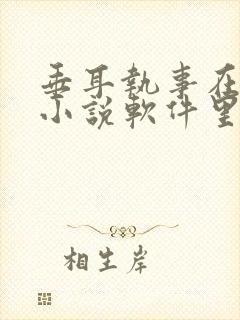 垂耳執事在
小說軟件里
相生岸